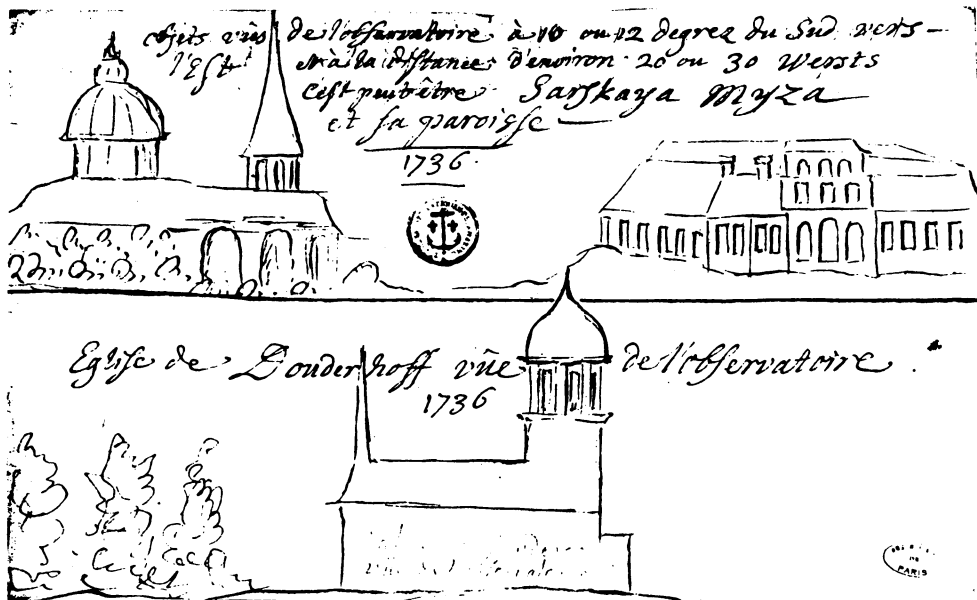 objets vûs de l'observatoire à 10 ou 12 degrez du Sud vers
l'Est et à la distance d'environ 20 ou 30 Wersts
c'est peut être Sarskaya Myza
et sa paroisse
1736.
Eglise de Douderhoff vûe de l'observatoire
1736
DE
PARIS